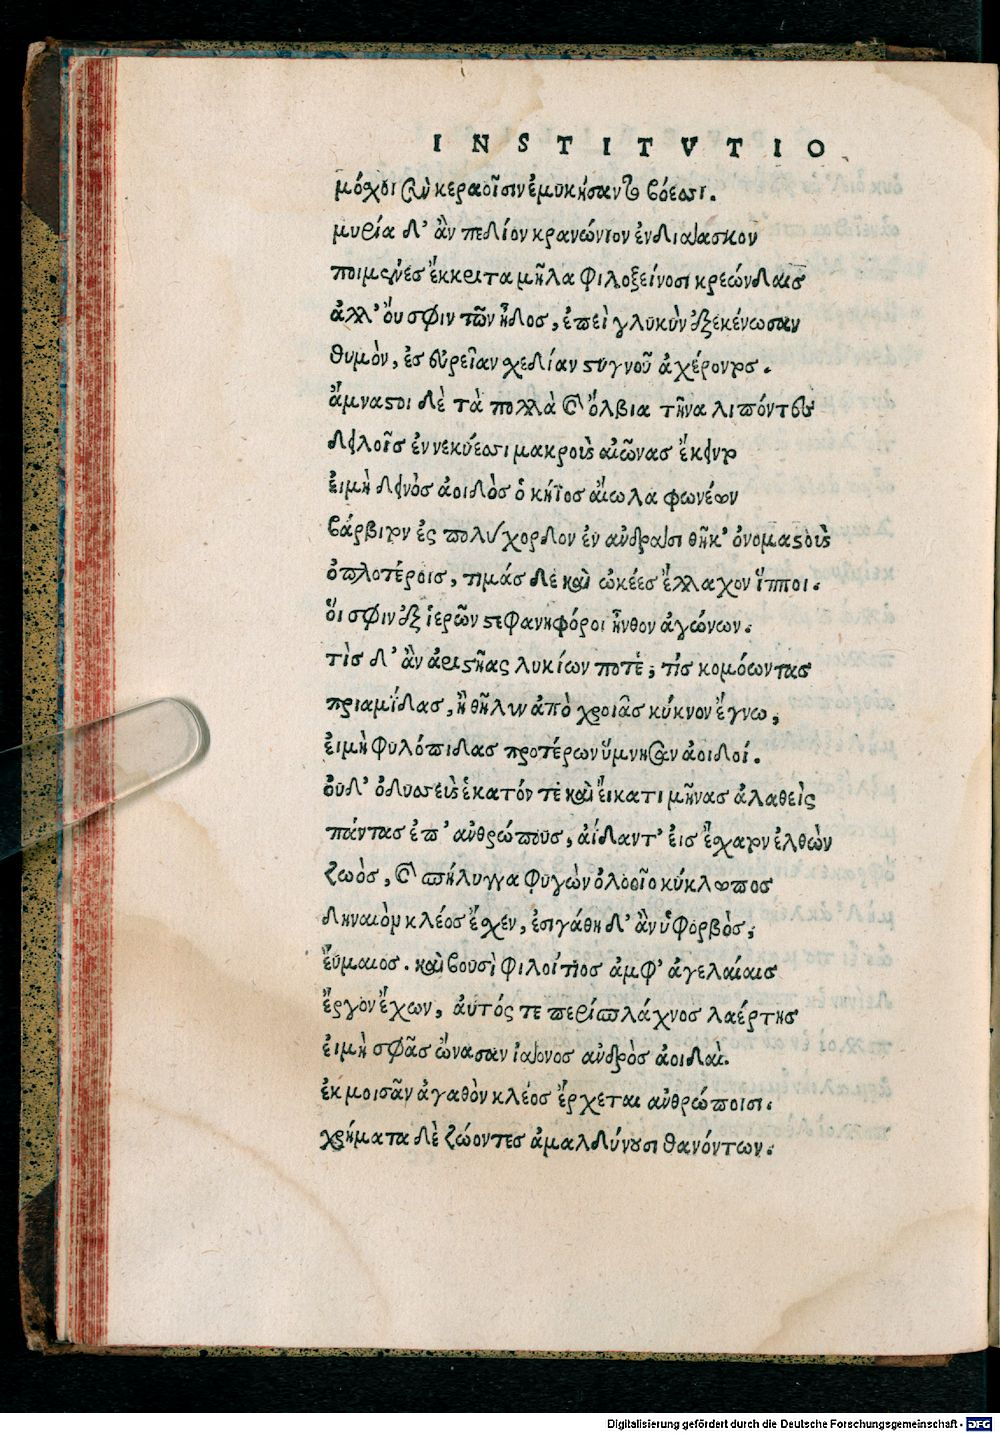 INSTITVTIO
μόχοι σὺν κεραοῖσιν ἐμυκήσαντο βόεσσι.
μυρία δ' ἂν πεδίον κρανώνιον ἐνδιάασκον
ποιμένες ἔκκριτα μῆλα φιλοξείνοσι κρεώνδαισ
ἀλλ' ὄυ σφιν τῶν ἦδοσ, ἐπεὶ γλυκὺν ἐξεκένωσαν
θυμὸν, ἐσ ἐυρεῖαν χεδίαν στυγνοῦ ἀχέροντοσ.
ἄμναστοι δὲ τὰ πολλὰ καὶ ὄλβια τῆνα λιπόντεσ
δειλοῖσ ἐν νεκύεσσι μακροὺσ αἰῶνασ ἔκειντο
ἐιμὴ δεινὸσ ἀοιδὸσ ὁ κήϊοσ αἴολα φωνέων
βάρβιτον ἐς πολύχορδον ἐν ἀνδράσι θῆκ' ὀνομαστοὺσ
ὁπλοτέροισ, τιμάσ δὲ καὶ ὠκέεσ ἔλλαχον ἵπποι.
ὅι σφιν ἐξ ἱερῶν στεφανηφόροι ἦνθον ἀγώνων.
τὶσ δ' ἂν ἀριστῆας λυκίων ποτὲ; τίσ κομόωντασ
πριαμίδασ, ἢ θῆλυν ἀπὸ χροιᾶσ κύκνον ἔγνω;
ἐιμὴ φυλόπιδασ προτέρων ὕμνησαν ἀοιδοί.
ὀυδ' ὀδυσσεὺσ ἑκατόν τε καὶ ἔικατι μῆνασ ἀλαθεὶς
πάντασ ἐπ' ἀνθρώπουσ, ἀίδαντ' ἐισ ἔχατον ἐλθὼν
ζωὸσ, καὶ σπήλυγγα φυγὼν ὀλοοῖο κύκλωποσ
δηναιὸν κλέοσ ἔχεν, ἐσιγάθη δ' ἂν ὑφορβὸσ,
ἔυμαιοσ. καὶ βουσὶ φιλοίτιοσ ἀμφ' ἀγελαίαισ
ἔργον ἔχων, ἀυτός τε περίσπλάχνοσ λαέρτησ
ἐιμὴ σφᾶσ ὤνασαν ἰάονοσ ἀνδρὸσ ἀοιδαὶ.
ἐκ μοισᾶν ἀγαθὸν κλέοσ ἔρχεται ἀνθρώποισι.
χρήματα δὲ ζώοντεσ ἀμαλδύνουσι θανόντων.
Digitalisierung gefördert durch die Deutsche Forschungsgemeinschaft - DFG